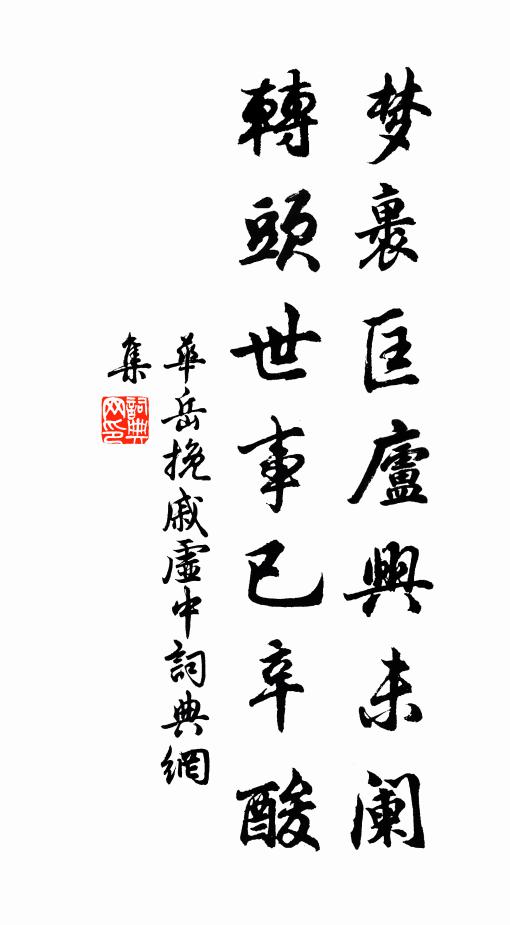 梦裏匡廬興未阑
轉頭世事已辛酸
華岳挽戚虛中詞典網
集
詞典
网印